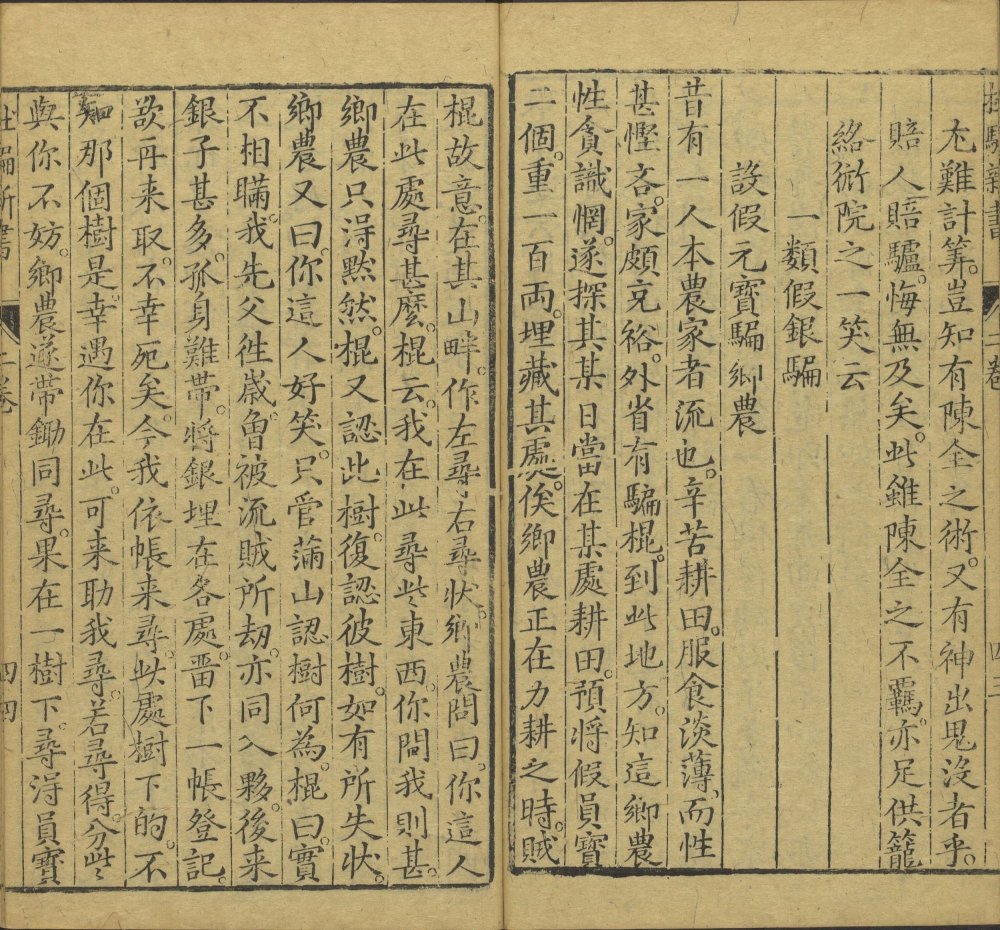 尤難計筭。豈知有陳全之術。又有神出鬼沒者乎。
賠人賠驢。悔無及矣。此雖陳全之不羈。亦足供籠
絡衏院之一笑云
一類假銀騙
設假元寶騙鄉農
昔有一人本農家者流也。辛苦耕田。服食淡薄、而性
甚慳吝。家頗充裕。外省有騙棍。到此地方。知這鄉農
性貪識惘。遂探其某日當在某處耕田。預將假員寶
二個。重一百両。埋藏某處。俟鄉農正在力耕之時。賊
棍故意。在其山畔。作左尋右尋狀。鄉農問曰。你這人
在此處尋甚麽。棍云。我在此尋些東西。你問我則甚。
鄉農只淂黙然。棍又認此樹。復認彼樹。如有所失状。
鄉農又曰。你這人好笑。只管滿山認樹何為。棍曰。實
不相瞞。我先父徃歲。曽被流賊所刼。亦同入夥。後来
銀子甚多。孤身難帶。將銀埋在各處。畱下一帳登記。
欲再来取。不幸死矣。今我依帳来尋。此處樹下的。不
知那個樹是。幸遇你在此。可来助我尋。若尋得。分些
與你不妨。鄉農遂帶鋤同尋。果在一樹下。尋淂員寶
二卷
四三
杜騙新書
二卷
四四